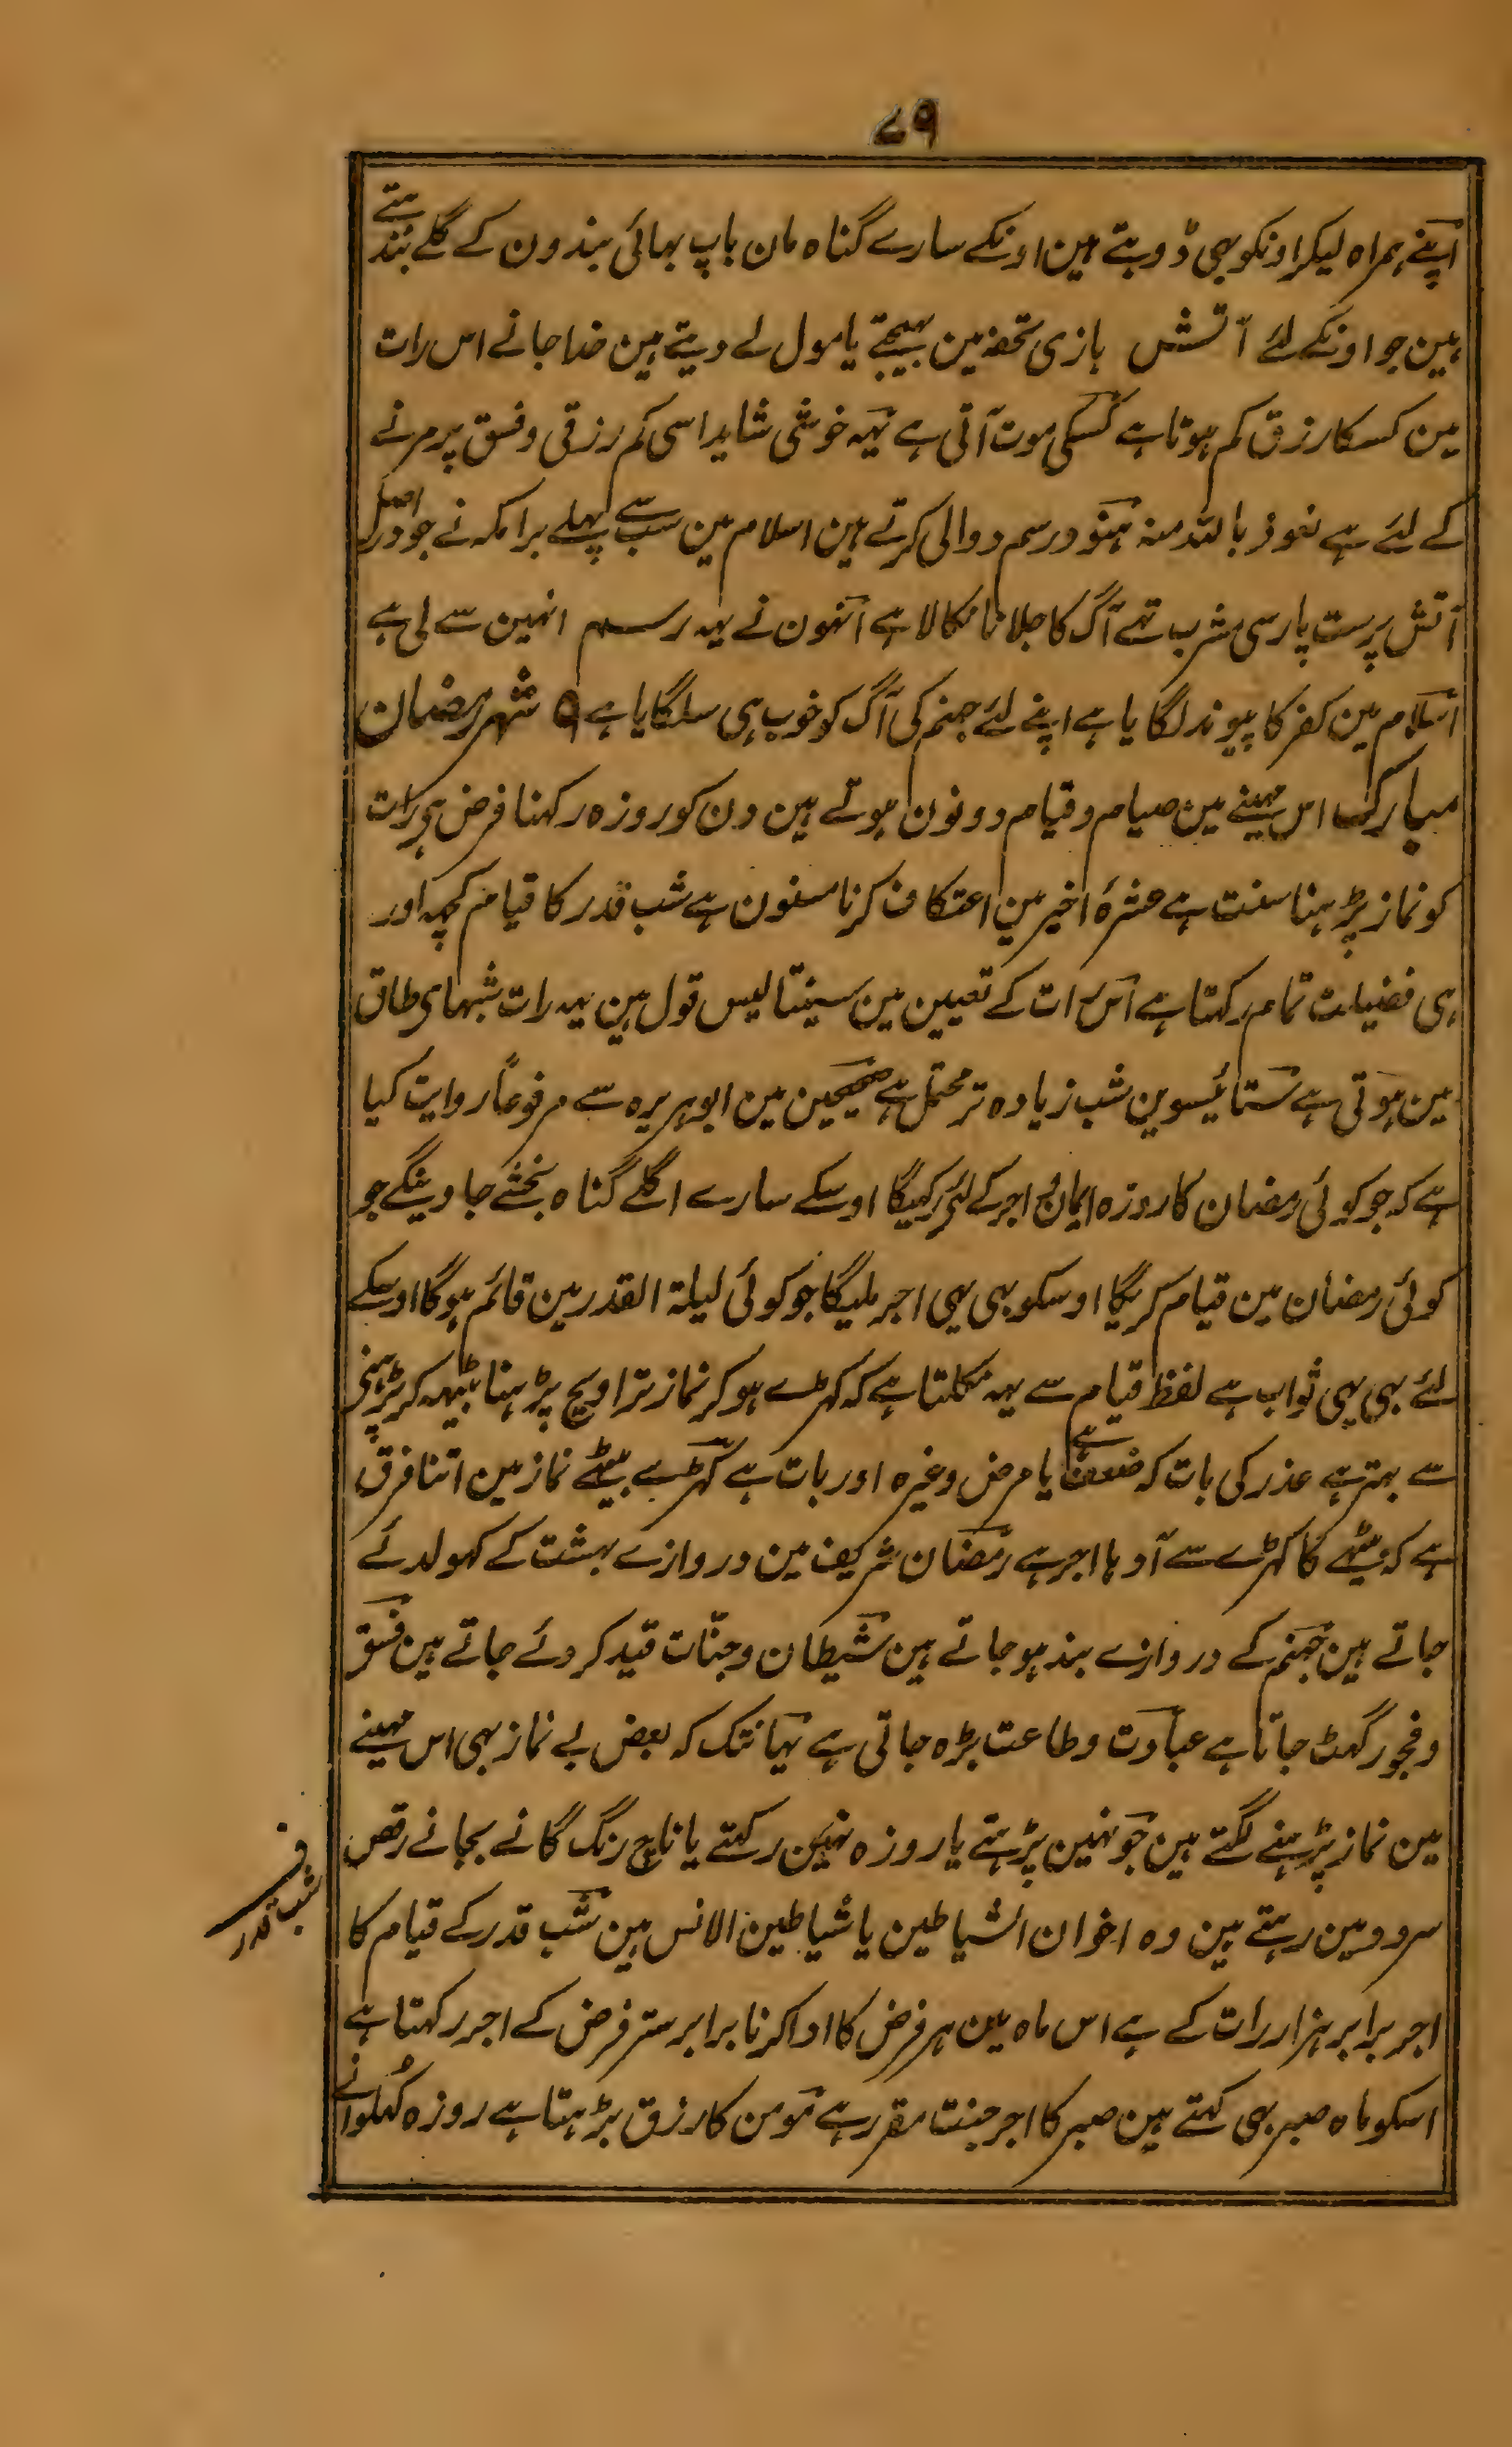 ۷۹
اپنے ہمراہ لیکر اونکو بھی ڈوبتے ہین اونکے سارے گناہ مان باپ بہائی بندون کے گلے بندہتے
ہین جو اونکے لئے آتش بازی تحفہ مین بھیجتے یا مول لے دیتے ہین خدا جانے اس رات
مین کسکا رزق کم ہوتا ہے کسکی موت آتی ہے یہہ خوشی شاید اسی کم رزقی و فسق پر مرنے
کے لئے ہے نعوذ باللہ منہ ہنود رسم دوالی کرتے ہین اسلام مین سب سے پہلے برامکہ نے جو دراصل
آتش پرست پارسی مشرب تہے آگ کا جلانا نکالا ہے انہون نے یہہ رسم انہین سے لی ہے
اسلام مین کفر کا پیوند لگایا ہے اپنے لئے جہنم کی آگ کو خوب ہی سلگایا ہے ۹ شہر رمضان
مبارک اس مہینے مین صیام و قیام دونون ہوتے ہین دن کو روزہ رکہنا فرض ہی رات
کو نماز پڑہنا سنت ہے عشرۂ اخیر مین اعتکاف کرنا مسنون ہے شب قدر کا قیام کچہہ اور
ہی فضیلت تمام رکہتا ہے اس رات کے تعیین مین سینتالیس قول ہین یہہ رات شبہای طاق
مین ہوتی ہے ستائیسوین شب زیادہ تر محتمل ہے صحیحین مین ابوہریرہ سے مرفوعاً روایت کیا
ہے کہ جو کوئی رمضان کا روزہ ایمان و اجر کے لئے رکہیگا اوسکے سارے اگلے گناہ بخشے جاوینگے جو
کوئی رمضان مین قیام کریگا اوسکو بھی یہی اجر ملیگا جو کوئی لیلۃ القدر مین قائم ہوگا اوسکے
لئے بھی یہی ثواب ہے لفظ قیام سے یہہ نکلتا ہے کہ کہڑے ہو کر نماز تراویح پڑہنا بیٹہہ کر پڑہنی
سے بہتر ہے عذر کی بات کہ ضعف ہے یا مرض وغیرہ اور بات ہے کہڑے بیٹھے نماز مین اتنا فرق
ہے کہ بیٹھے کا کہڑے سے آدہا اجر ہے رمضان شریف مین دروازے بہشت کے کہولدئے
جاتے ہین جہنم کے دروازے بند ہو جاتے ہین شیطان و جنّات قید کر دئے جاتے ہین فسق
و فجور گہٹ جاتا ہے عبادت و طاعت بڑہ جاتی ہے یہانتک کہ بعض بے نماز بھی اس مہینے
مین نماز پڑہنے لگتے ہین جو نہین پڑہتے یا روزہ نہین رکہتے یا ناچ رنگ گانے بجانے رقص
سرود مین رہتے ہین وہ اخوان الشیاطین یا شیاطین الانس ہین شب قدر کے قیام کا
ف
شب قدر
اجر برابر ہزار رات کے ہے اس ماہ مین ہر فرض کا ادا کرنا برابر ستر فرض کے اجر رکہتا ہے
اسکو ماہ صبر بھی کہتے ہین صبر کا اجر جنت مقرر ہے مومن کا رزق بڑہتا ہے روزہ کہلوانے